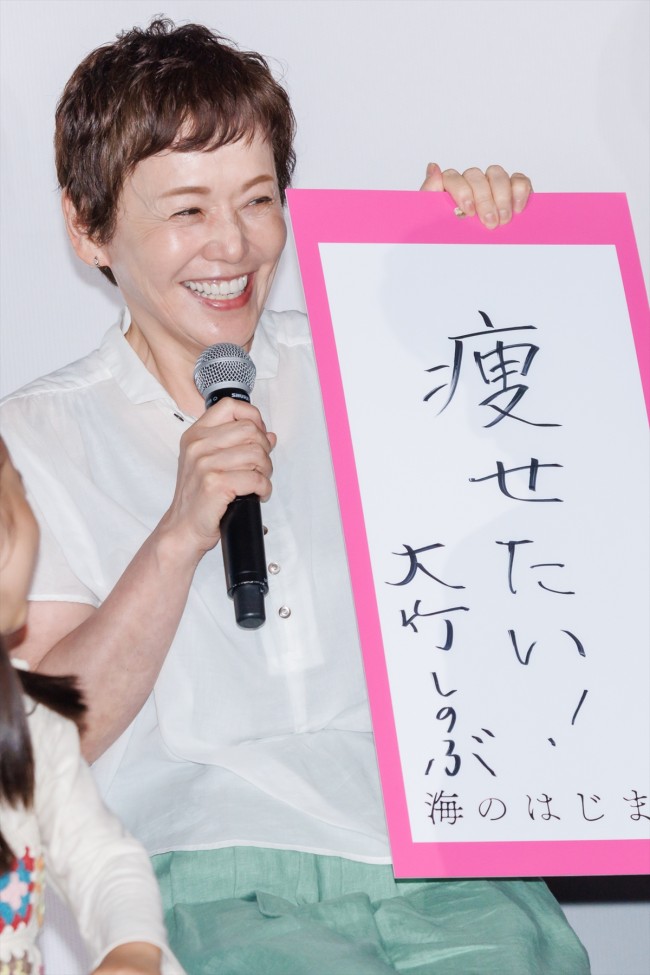 痩せたい!
大竹しのぶ
海のはじま